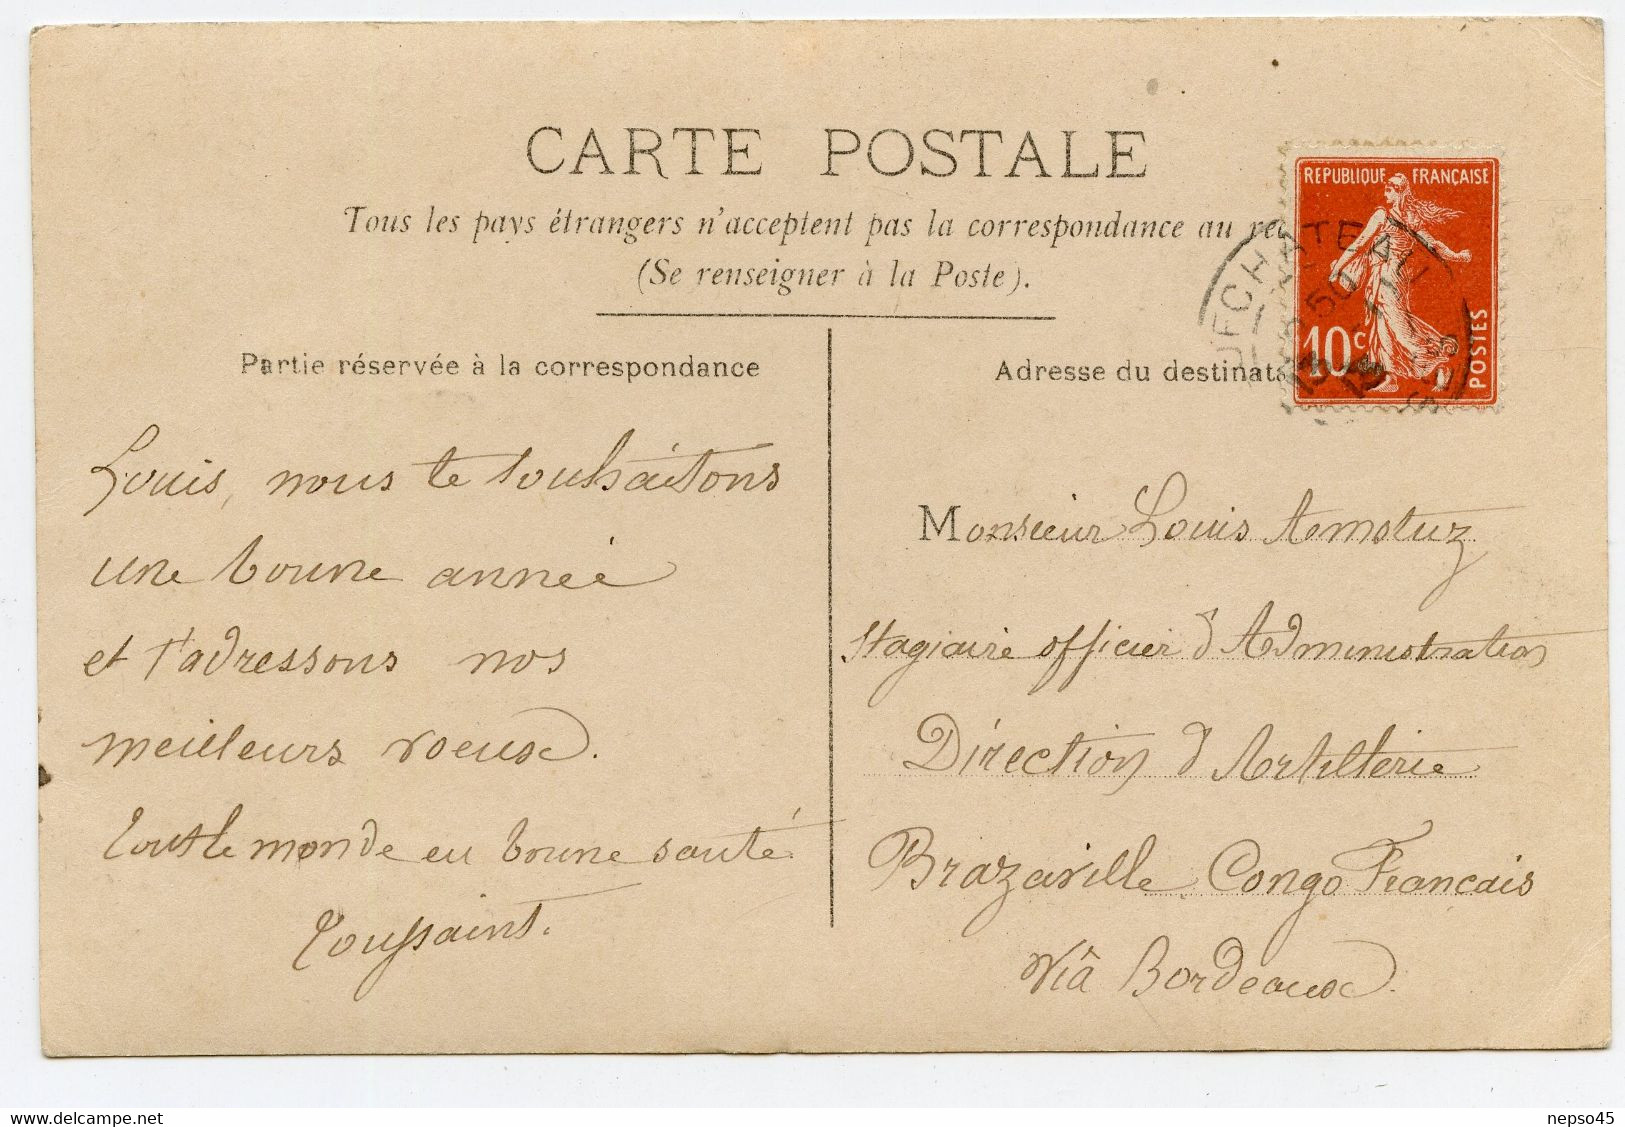 CARTE POSTALE
Tous les pays étrangers n'acceptent pas la correspondance au rec
(Se renseigner à la Poste).
REPUBLIQUE FRANÇAISE
10c
POSTES
UFCHATEAU
Partie réservée à la correspondance
Louis, nous te souhaitons
une bonne année
et t'adressons nos
meilleurs voeux.
tout le monde en bonne santé
Toussaint.
Adresse du destinata
Monsieur Louis
Stagiaire officier d'Administration
Direction d'Artillerie
Brazaville Congo Français
Viâ Bordeaux.
delcampe.net
nepso45